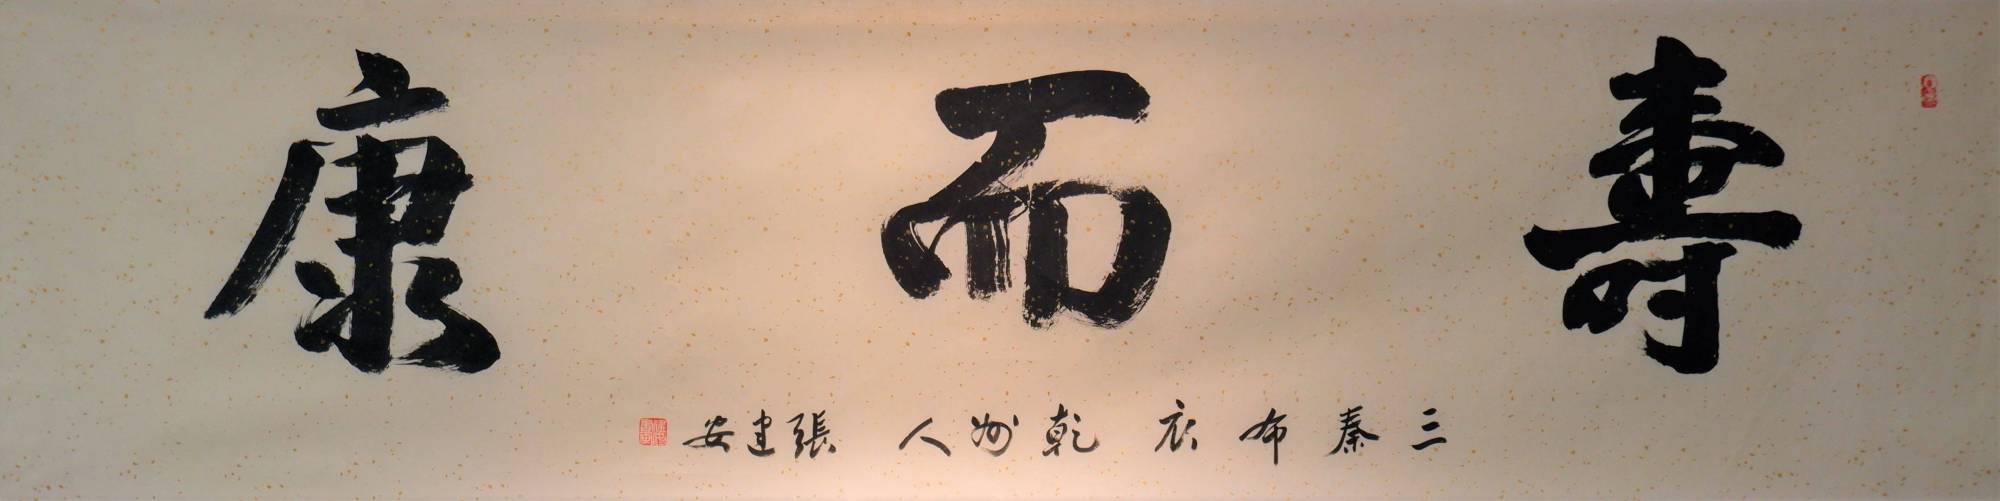 壽而康
三秦布衣 乾州人 張建安